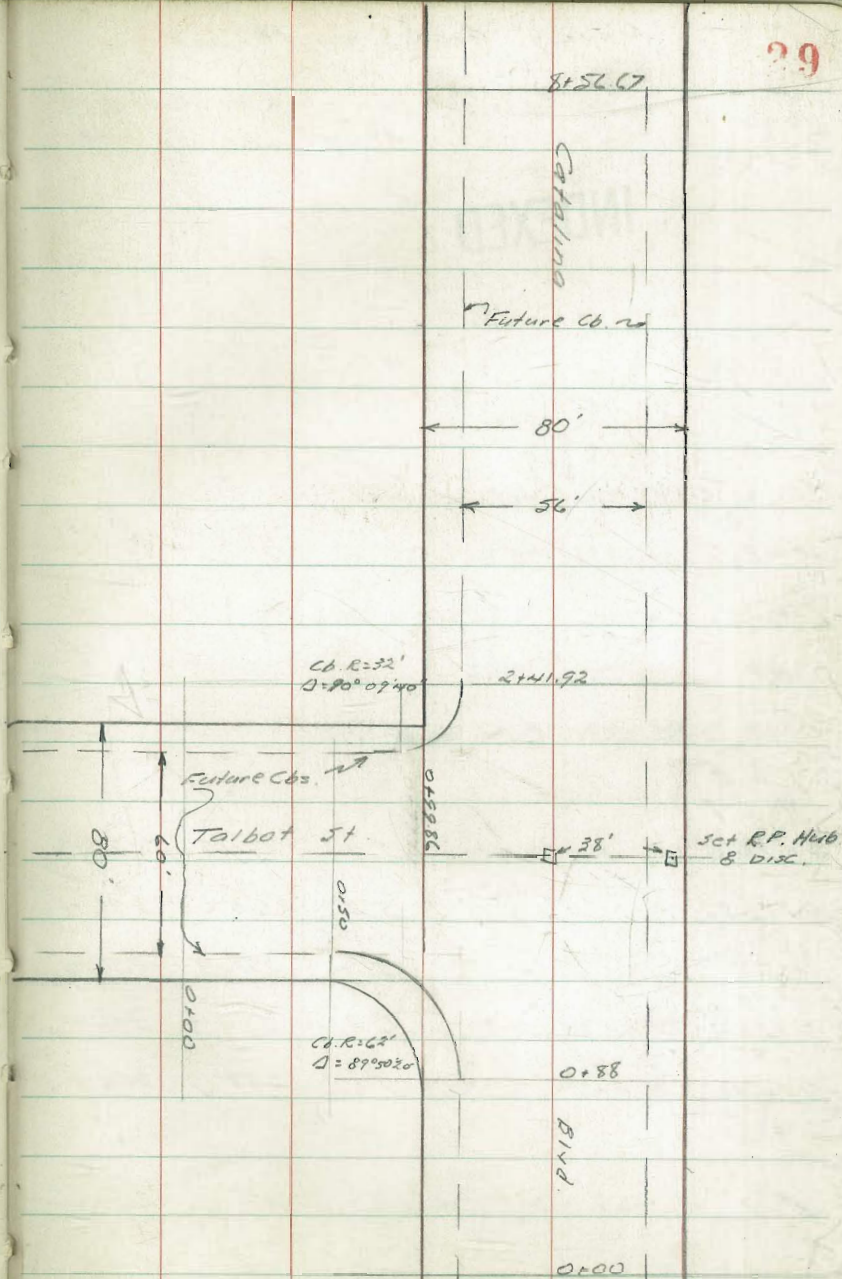 29
8+56.67
Catalina
Future Cb.
80'
56'
Cb. R=32'
Δ=90°09'40"
2+41.92
Future Cbs.
Talbot St.
80'
60'
38'
Set R.P. Hub
& Disc.
0+50
0+00
Cb. R=62'
Δ=89°50'20"
0+88
Blvd.
0+00
INDEXED